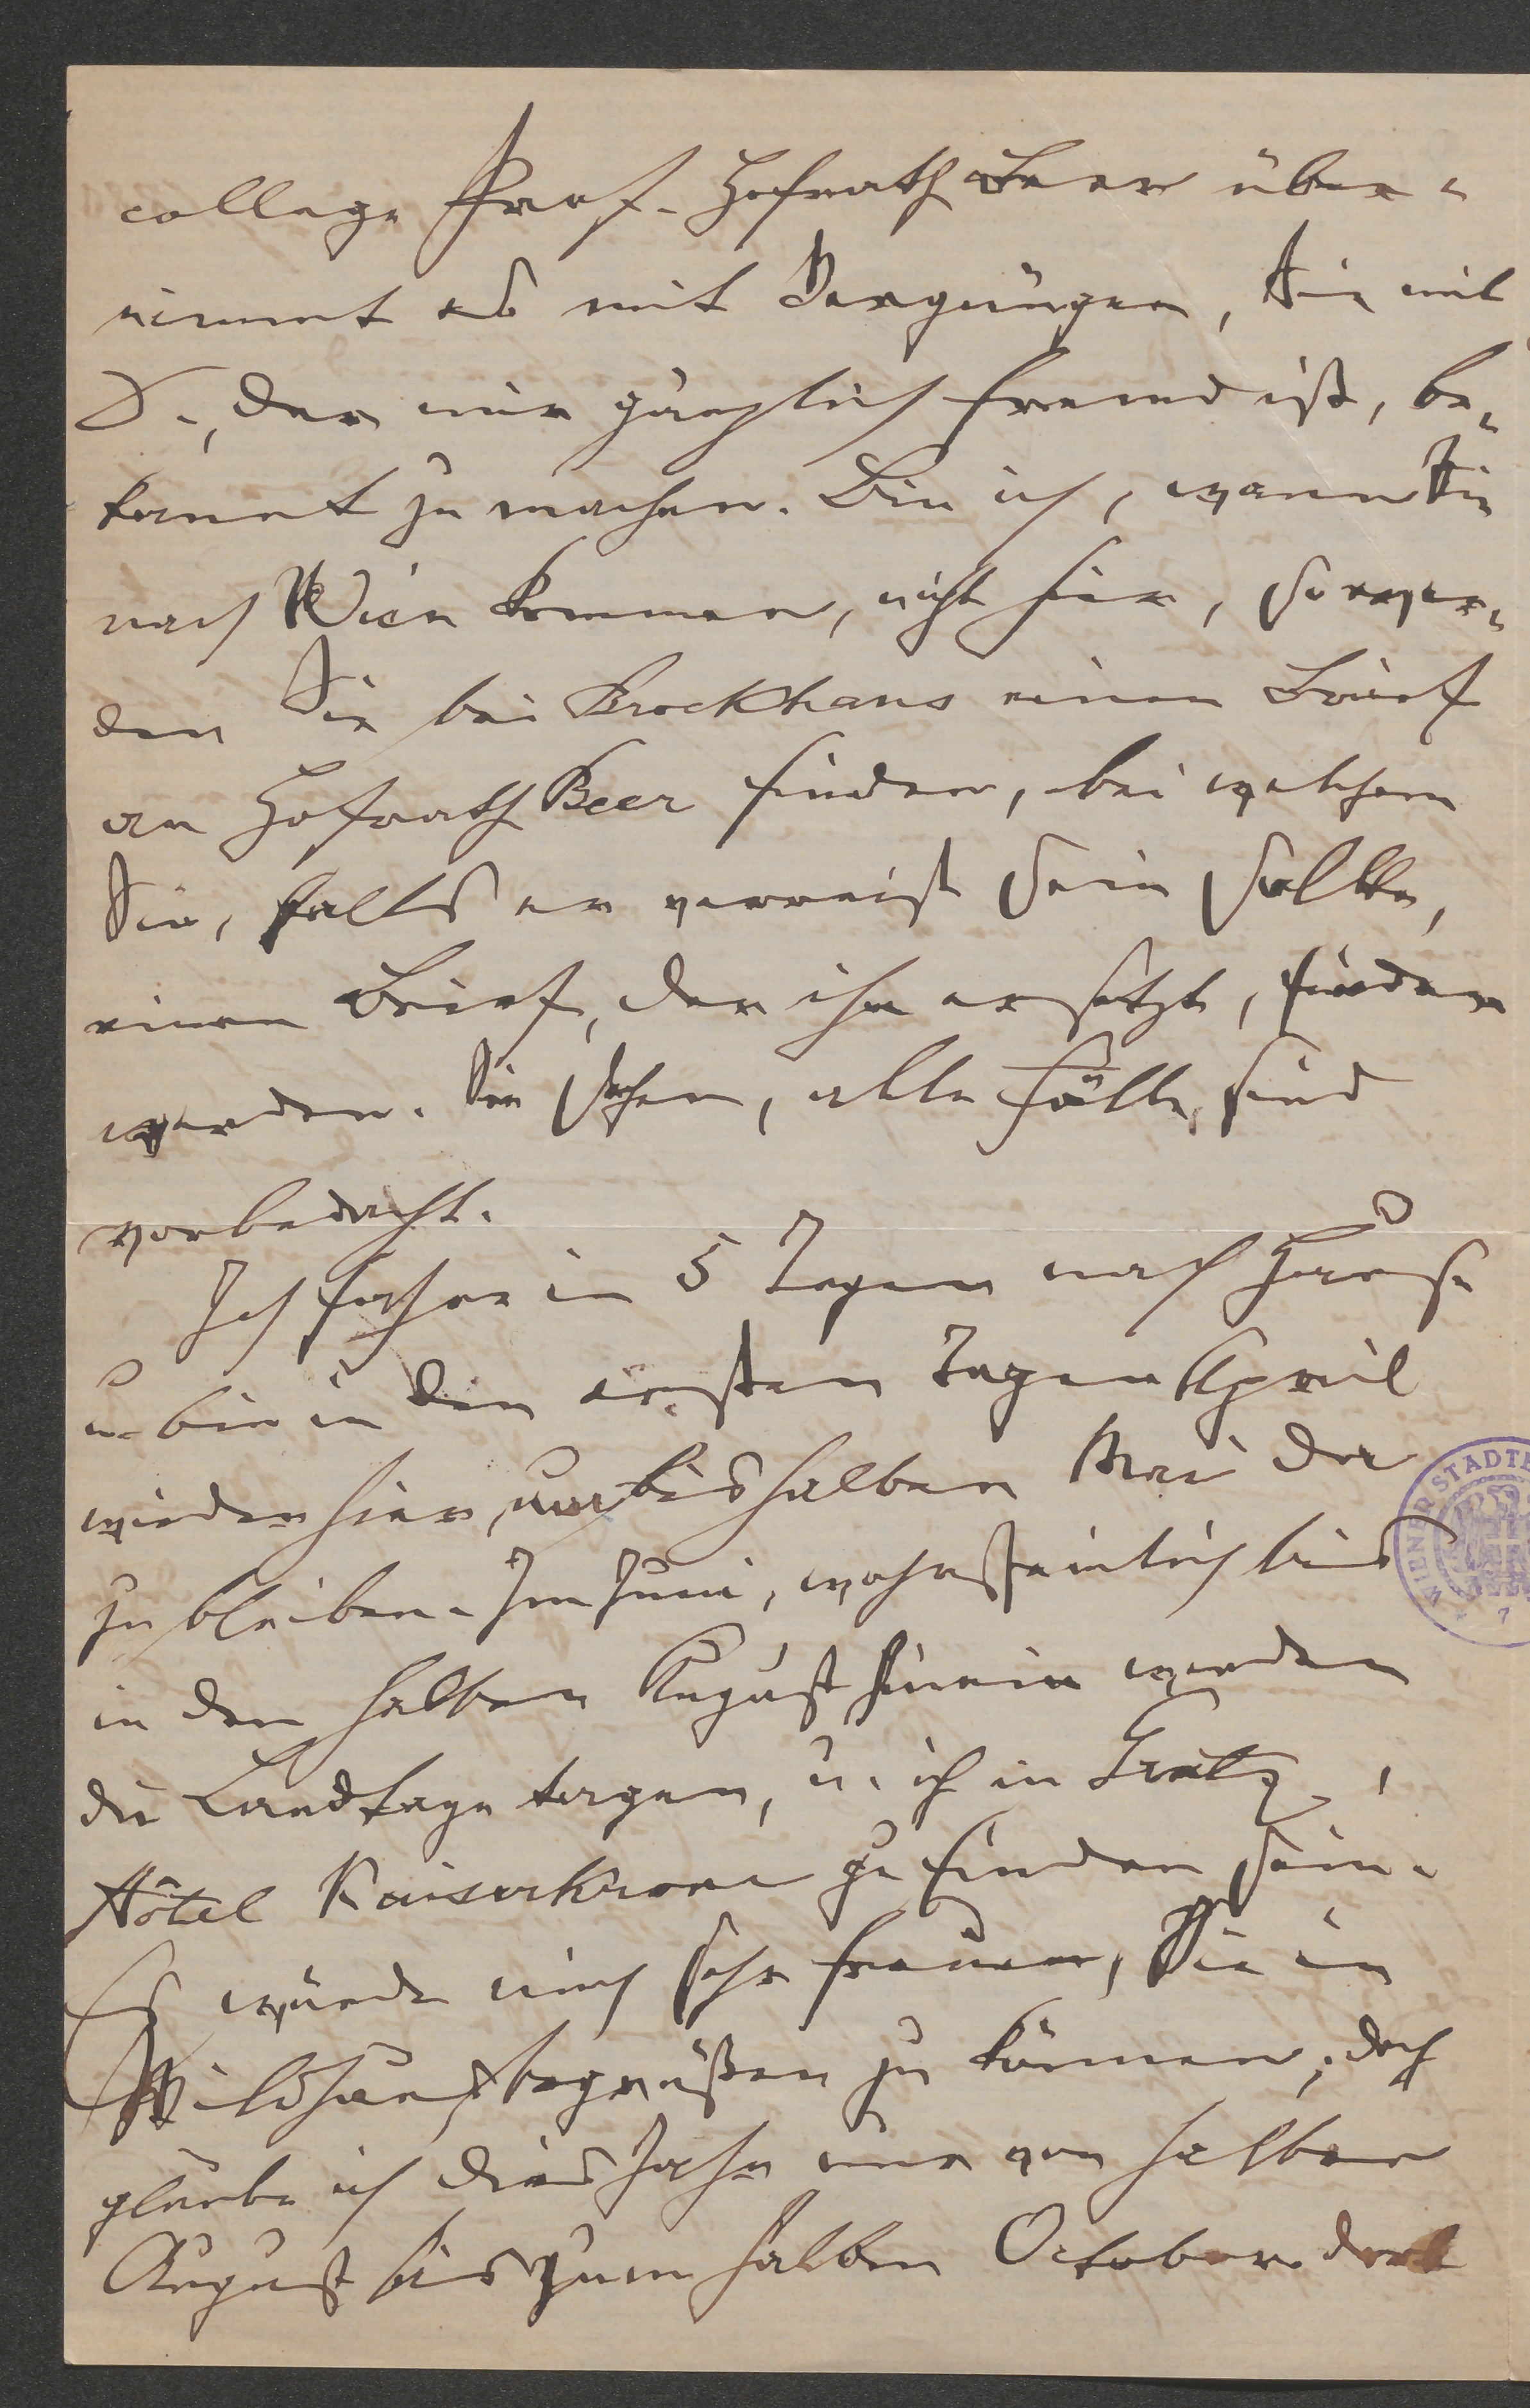 college Prof. Hofrath Beer über-
nimmt es mit Vergnügen, Sie mit
D., der mir gänzlich fremd ist, be-
kannt zu machen. Bin ich, wann Sie
nach Wien kommen, nicht hier, so wer-
den Sie bei Brockhaus einen Brief
an Hofrath Beer finden, bei welchem
Sie, falls er verreist sein sollte,
einen Brief, der ihn ersetzt, finden
werden. Sie sehen, alle Fälle sind
vorbedacht.
Ich fahre in 5 Tagen nach Hause
u. bin in den ersten Tagen April
wieder hier, um bis halben Mai da
zu bleiben. Im Juni, wahrscheinlich bis
in den halben August hinein werden
die Landtage tagen, u. ich in Gratz,
Hôtel Kaiserkrone zu finden sein.
Es würde mich sehr freuen, Sie in
Wildhaus begrüßen zu können; doch
glaube ich dies Jahr nur von halben
August bis zum halben October dort
WIENER STADTB